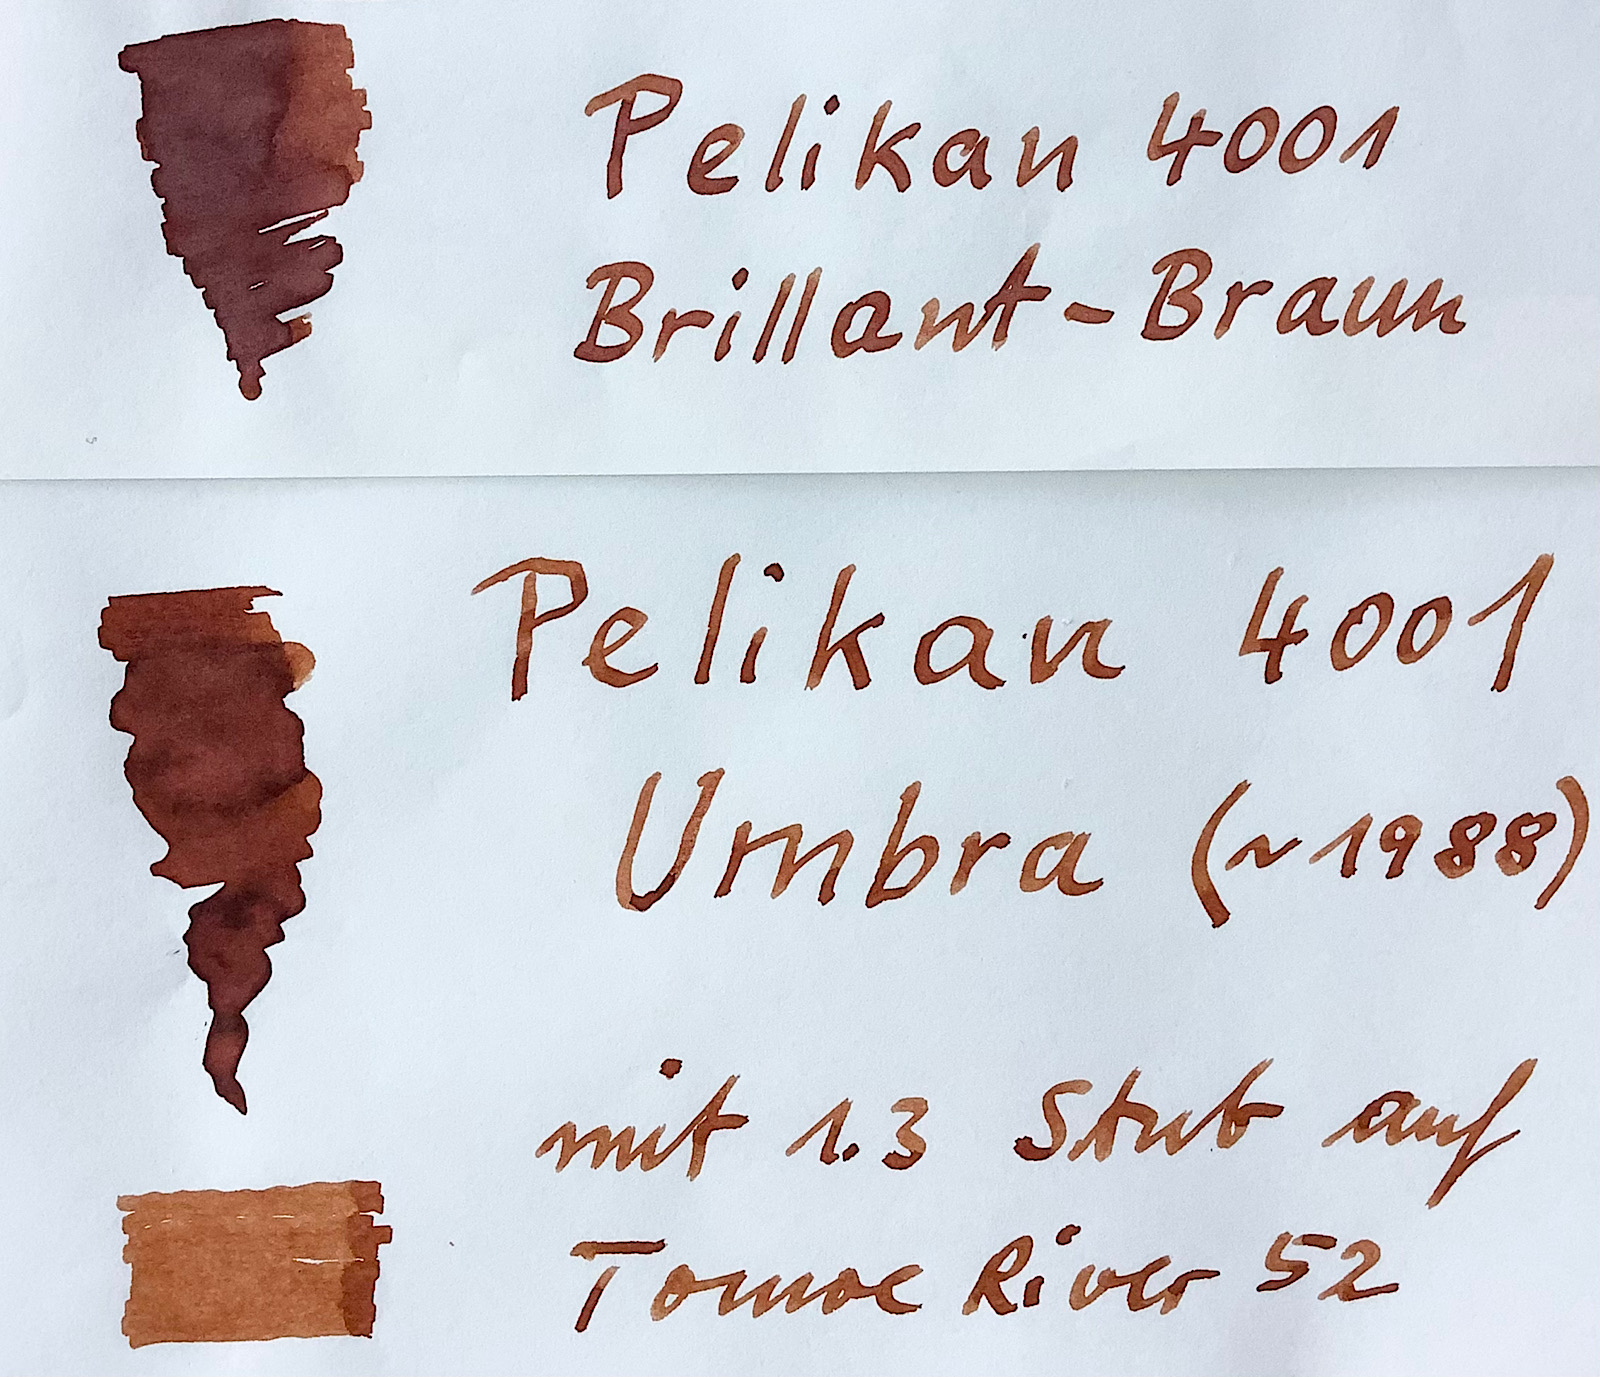 Pelikan 4001
Brillant-Braun
Pelikan 4001
Umbra (~1988)
mit 1.3 Stub auf
Tomoe River 52